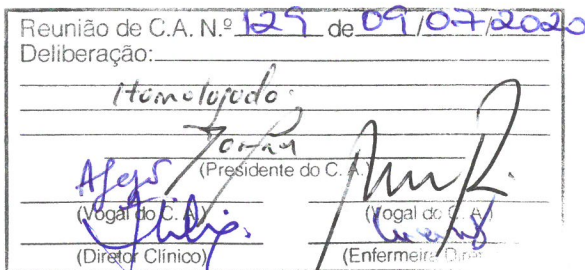 Reunião de C.A. N.º 129 de 09/07/2020
Deliberação:
Homologado.
(Presidente do C. A.)
(Vogal do C. A.) (Vogal do C. A.)
(Diretor Clínico) (Enfermeiro